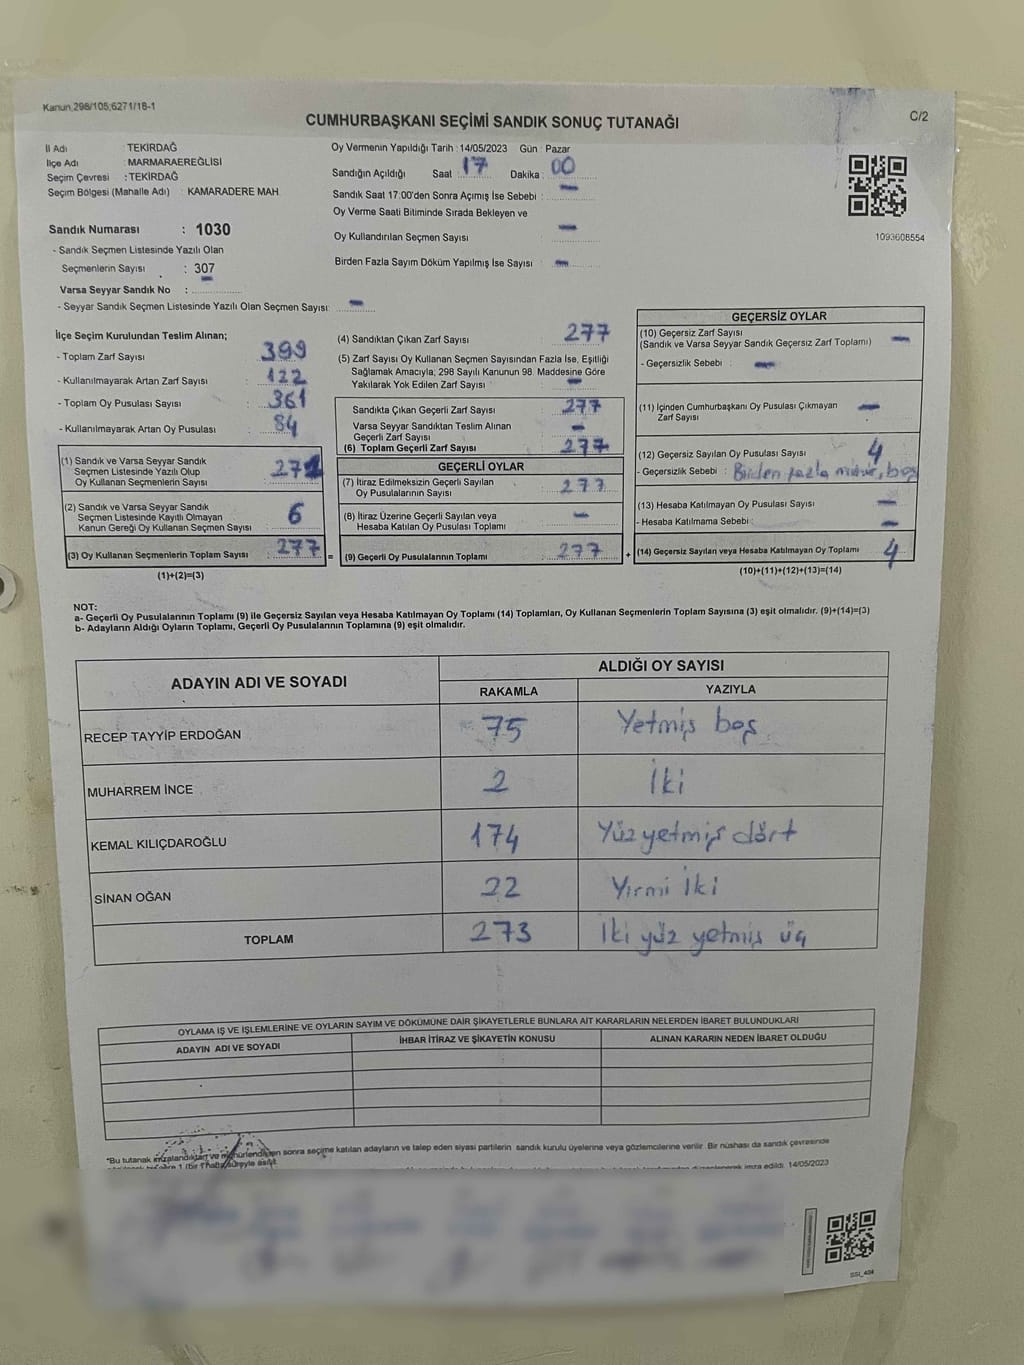 Kanun 298/105;6271/18-1
C/2
CUMHURBAŞKANI SEÇİMİ SANDIK SONUÇ TUTANAĞI
İl Adı : TEKİRDAĞ
İlçe Adı : MARMARAEREĞLİSİ
Seçim Çevresi : TEKİRDAĞ
Seçim Bölgesi (Mahalle Adı) : KAMARADERE MAH.
Sandık Numarası : 1030
- Sandık Seçmen Listesinde Yazılı Olan
Seçmenlerin Sayısı : 307
Varsa Seyyar Sandık No :
- Seyyar Sandık Seçmen Listesinde Yazılı Olan Seçmen Sayısı: -
Oy Vermenin Yapıldığı Tarih : 14/05/2023 Gün : Pazar
Sandığın Açıldığı Saat : 17 Dakika : 00
Sandık Saat 17:00'den Sonra Açımış İse Sebebi : -
Oy Verme Saati Bitiminde Sırada Bekleyen ve
Oy Kullandırılan Seçmen Sayısı : -
Birden Fazla Sayım Döküm Yapılmış İse Sayısı : -
1093608554
İlçe Seçim Kurulundan Teslim Alınan;
- Toplam Zarf Sayısı : 399
- Kullanılmayarak Artan Zarf Sayısı : 122
- Toplam Oy Pusulası Sayısı : 361
- Kullanılmayarak Artan Oy Pusulası : 84
(1) Sandık ve Varsa Seyyar Sandık
Seçmen Listesinde Yazılı Olup
Oy Kullanan Seçmenlerin Sayısı : 271
(2) Sandık ve Varsa Seyyar Sandık
Seçmen Listesinde Kayıtlı Olmayan
Kanun Gereği Oy Kullanan Seçmen Sayısı : 6
(3) Oy Kullanan Seçmenlerin Toplam Sayısı : 277
(1)+(2)=(3)
(4) Sandıktan Çıkan Zarf Sayısı : 277
(5) Zarf Sayısı Oy Kullanan Seçmen Sayısından Fazla İse, Eşitliği
Sağlamak Amacıyla; 298 Sayılı Kanunun 98. Maddesine Göre
Yakılarak Yok Edilen Zarf Sayısı : -
Sandıkta Çıkan Geçerli Zarf Sayısı : 277
Varsa Seyyar Sandıktan Teslim Alınan
Geçerli Zarf Sayısı : -
(6) Toplam Geçerli Zarf Sayısı : 277
GEÇERLİ OYLAR
(7) İtiraz Edilmeksizin Geçerli Sayılan
Oy Pusulalarının Sayısı : 277
(8) İtiraz Üzerine Geçerli Sayılan veya
Hesaba Katılan Oy Pusulası Toplamı : -
= (9) Geçerli Oy Pusulalarının Toplamı : 277 +
GEÇERSİZ OYLAR
(10) Geçersiz Zarf Sayısı
(Sandık ve Varsa Seyyar Sandık Geçersiz Zarf Toplamı) : -
- Geçersizlik Sebebi : -
(11) İçinden Cumhurbaşkanı Oy Pusulası Çıkmayan
Zarf Sayısı : -
(12) Geçersiz Sayılan Oy Pusulası Sayısı : 4
- Geçersizlik Sebebi : Birden fazla mühür, boş
(13) Hesaba Katılmayan Oy Pusulası Sayısı : -
- Hesaba Katılmama Sebebi : -
(14) Geçersiz Sayılan veya Hesaba Katılmayan Oy Toplamı : 4
(10)+(11)+(12)+(13)=(14)
NOT:
a- Geçerli Oy Pusulalarının Toplamı (9) ile Geçersiz Sayılan veya Hesaba Katılmayan Oy Toplamı (14) Toplamları, Oy Kullanan Seçmenlerin Toplam Sayısına (3) eşit olmalıdır. (9)+(14)=(3)
b- Adayların Aldığı Oyların Toplamı, Geçerli Oy Pusulalarının Toplamına (9) eşit olmalıdır.
ADAYIN ADI VE SOYADI
ALDIĞI OY SAYISI
RAKAMLA YAZIYLA
RECEP TAYYİP ERDOĞAN 75 Yetmiş beş
MUHARREM İNCE 2 İki
KEMAL KILIÇDAROĞLU 174 Yüz yetmiş dört
SİNAN OĞAN 22 Yirmi İki
TOPLAM 273 İki yüz yetmiş üç
OYLAMA İŞ VE İŞLEMLERİNE VE OYLARIN SAYIM VE DÖKÜMÜNE DAİR ŞİKAYETLERLE BUNLARA AİT KARARLARIN NELERDEN İBARET BULUNDUKLARI
ADAYIN ADI VE SOYADI İHBAR İTİRAZ VE ŞİKAYETİN KONUSU ALINAN KARARIN NEDEN İBARET OLDUĞU
*Bu tutanak imzalandıktan ve mühürlendikten sonra seçime katılan adayların ve talep eden siyasi partilerin sandık kurulu üyelerine veya gözlemcilerine verilir. Bir nüshası da sandık çevresinde
1 (bir) hafta süreyle asılır. imza edildi. 14/05/2023